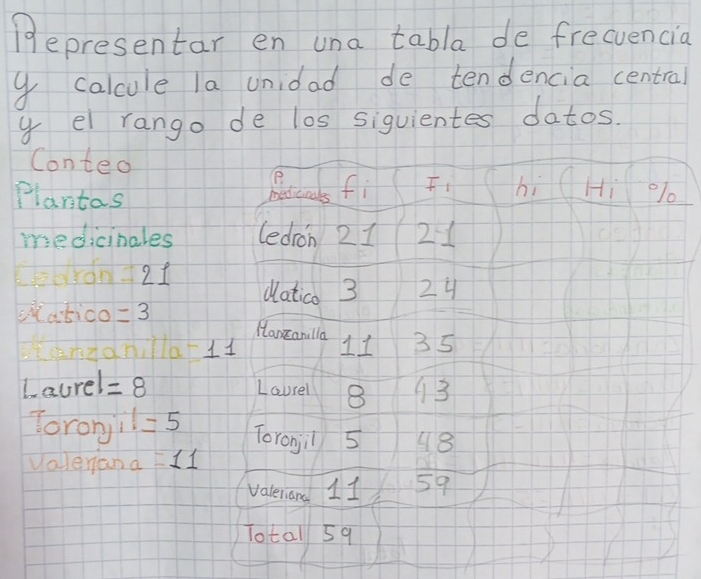 Representar en una tabla de frecuencia
y calcule la unidad de tendencia central
y el rango de los siguientes datos.
Conteo
Plantas
medicinales
Cedrón = 21
Matico = 3
Manzanilla = 11
Laurel = 8
Toronjil = 5
Valeriana = 11
P. medicinales fi Fi hi Hi %
Cedrón 21 21
Matico 3 24
Manzanilla 11 35
Laurel 8 43
Toronjil 5 48
Valeriana 11 59
Total 59